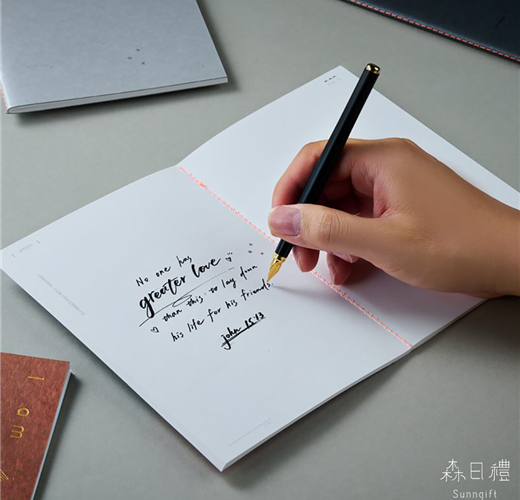 No one has
greater love
than this : to lay down
his life for his friends.
john 15:13
I am
森日禮
Sunngift